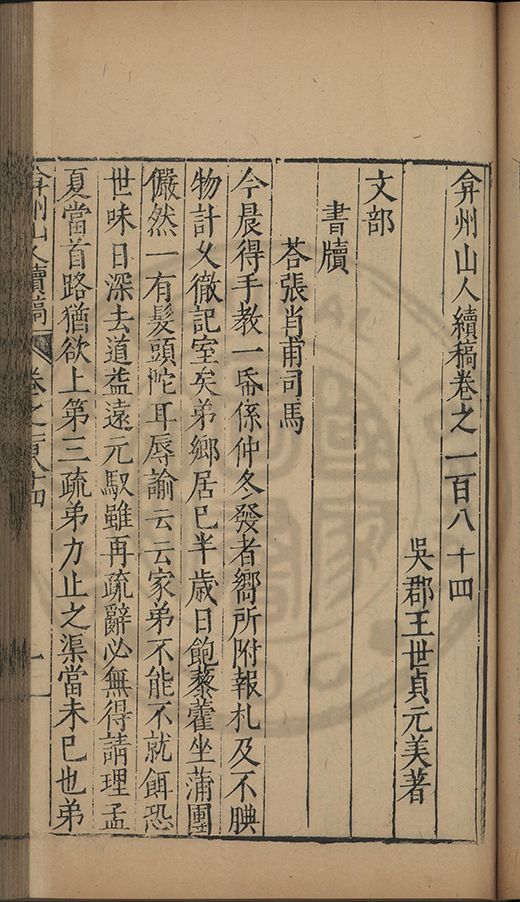 弇州山人續稿卷之一百八十四
吳郡王世貞元美著
文部
書牘
荅張肖甫司馬
今晨得手教一帋係仲冬發者嚮所附報札及不腆
物計久徹記室矣弟鄉居已半歲日飽藜藿坐蒲團
儼然一有髮頭陀耳辱諭云云家弟不能不就餌恐
世味日深去道益遠元馭雖再疏辭必無得請理孟
夏當首路猶欲上第三疏弟力止之渠當未已也弟
弇州山人續稿 卷之一百八十四 一